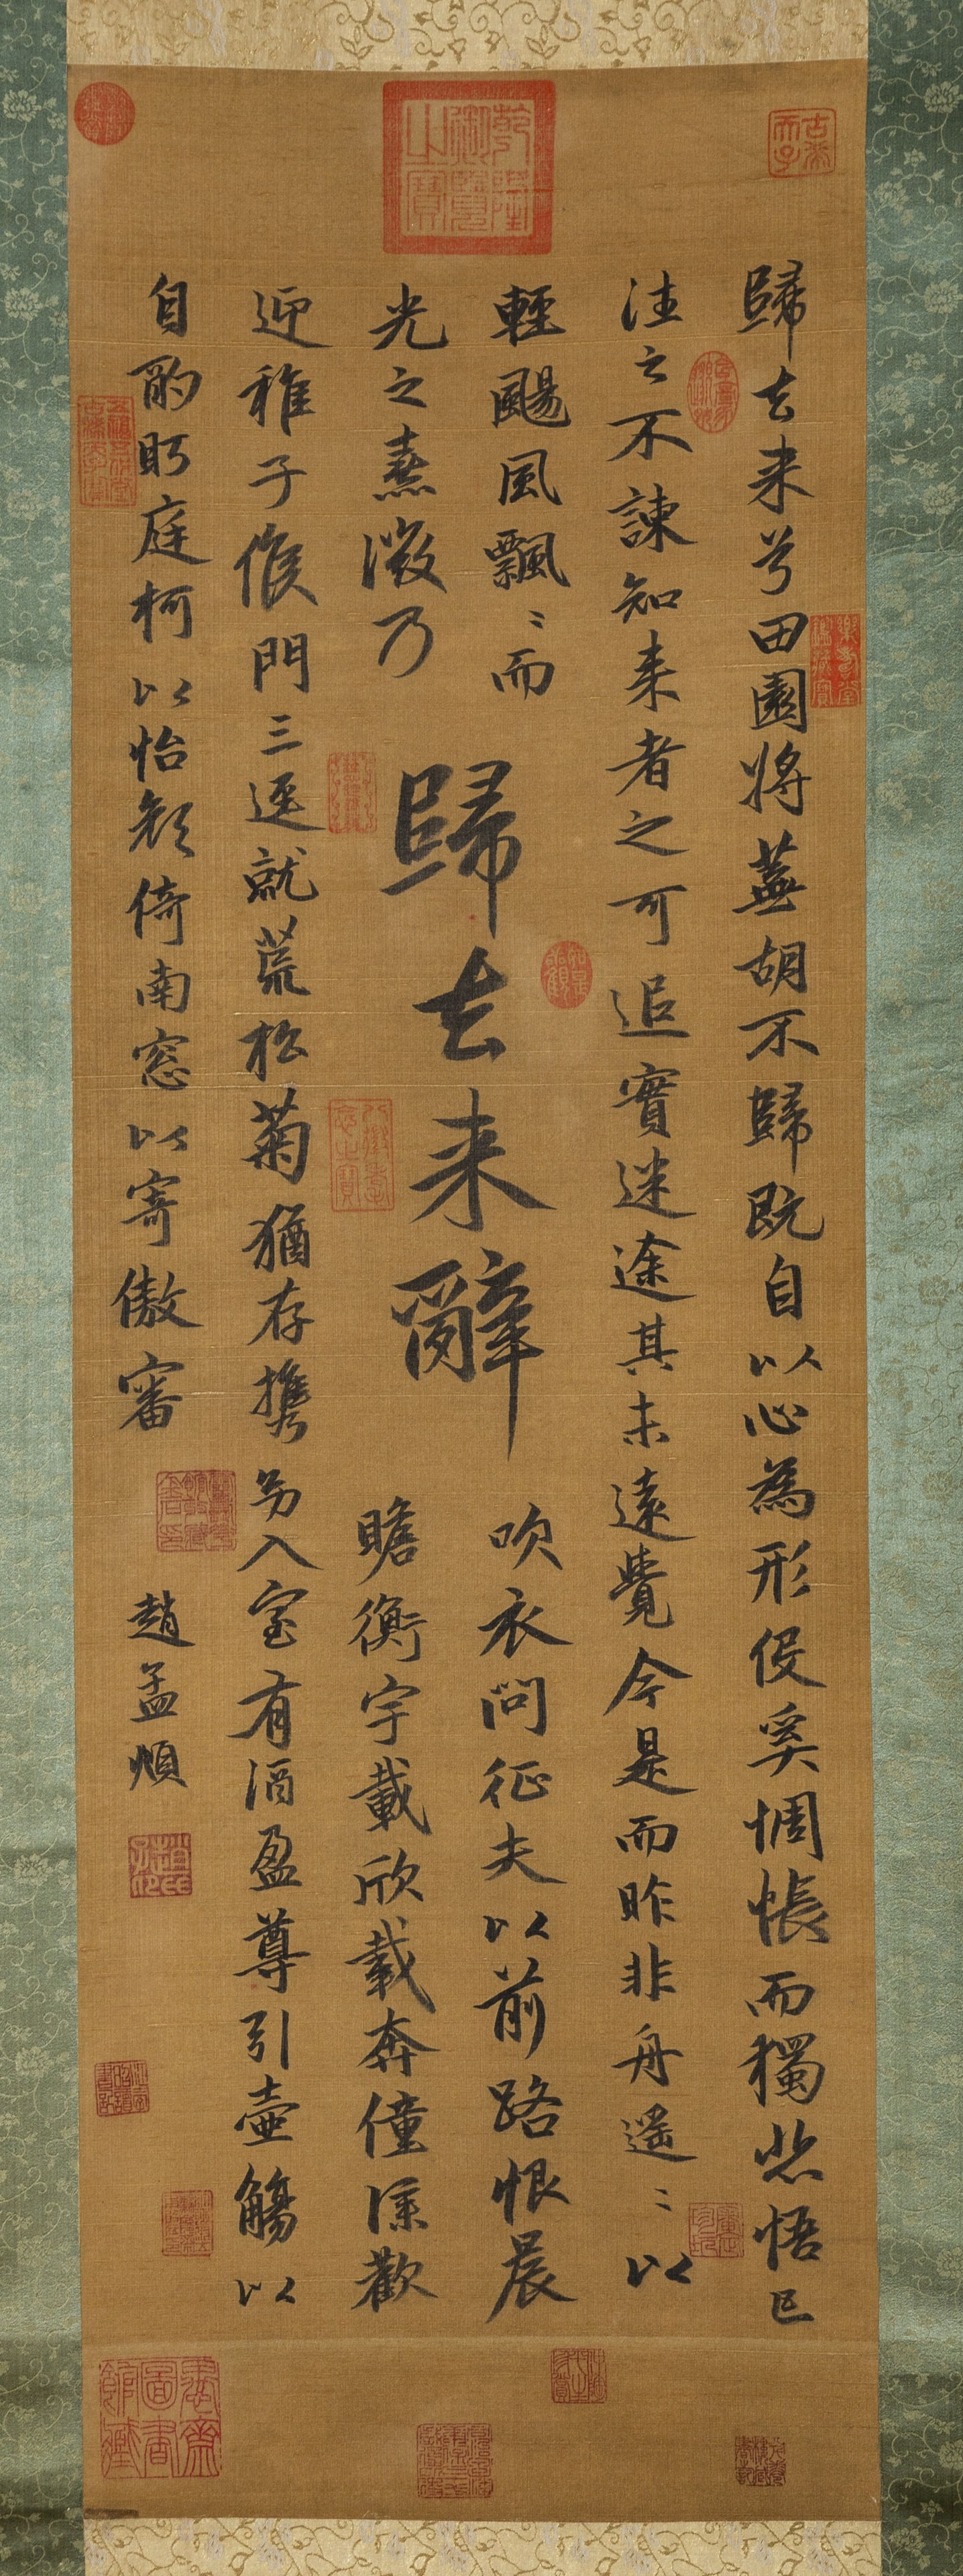 古希天子
乾隆御覽之寶
歸去来兮田園將蕪胡不歸既自以心為形役奚惆悵而獨悲悟已
往之不諫知来者之可追實迷途其未遠覺今是而昨非舟遥〻以
輕颺風飄〻而
吹衣問征夫以前路恨晨
光之熹微乃
瞻衡宇載欣載奔僮僕歡
歸去来辭
迎稚子候門三逕就荒松菊猶存携幼入室有酒盈尊引壺觴以
自酌眄庭柯以怡顏倚南窓以寄傲審
趙孟頫
如是觀
八徵耄念之寶
五福五代堂古稀天子寶